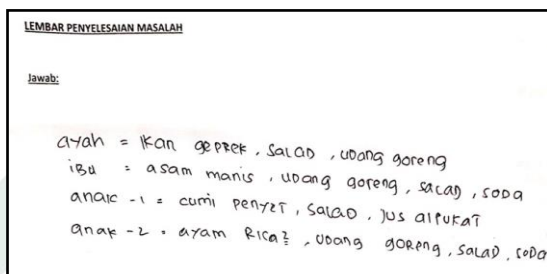 LEMBAR PENYELESAIAN MASALAH
Jawab:
ayah = ikan geprek, salad, udang goreng
ibu : asam manis, udang goreng, salad, soda
anak -1 = cumi penyet, salad, jus alpukat
anak -2 = ayam Rica2, udang goreng, salad, soda